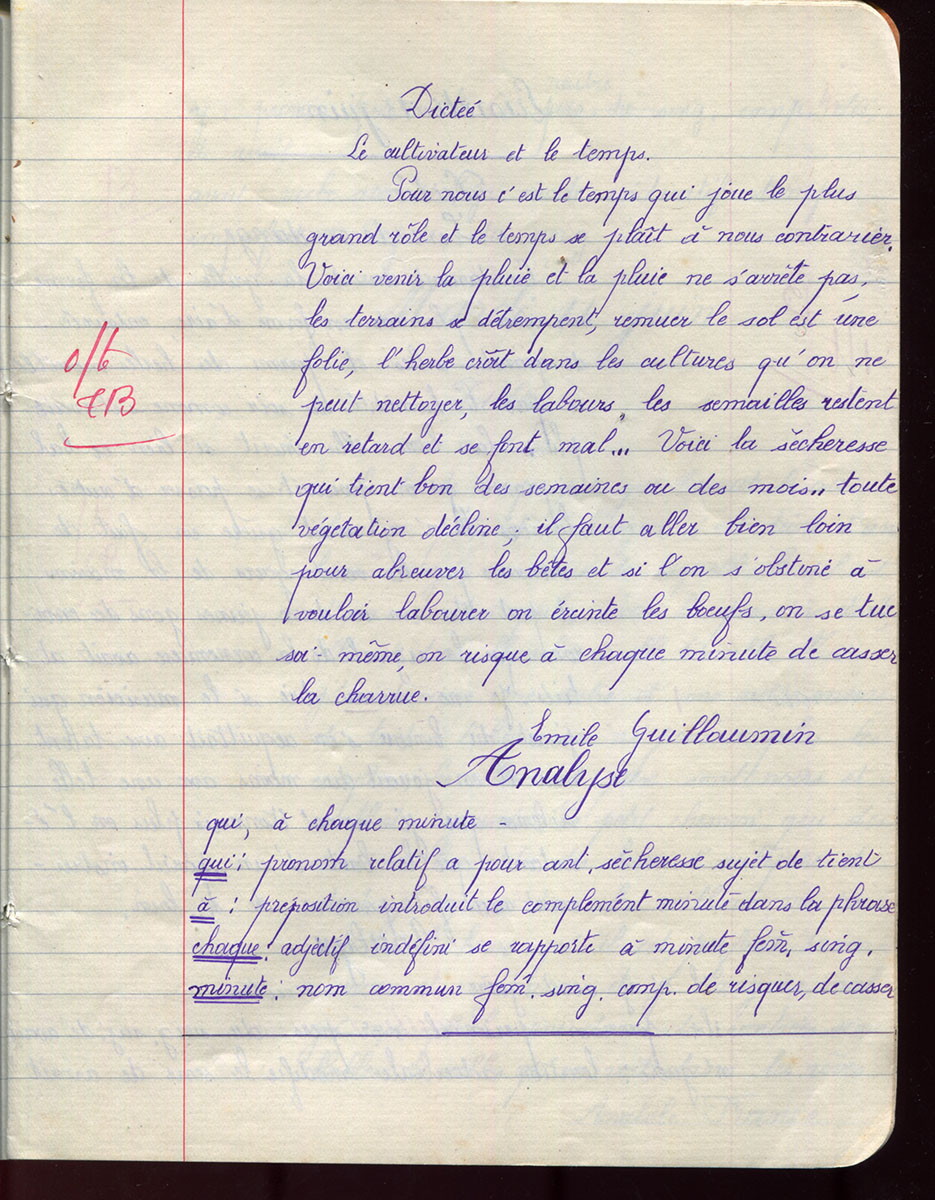 Dicteé
Le cultivateur et le temps.
Pour nous c'est le temps qui joue le plus
grand rôle et le temps se plaît à nous contrarier.
Voici venir la pluie et la pluie ne s'arrête pas,
les terrains se détrempent, remuer le sol est une
folie, l'herbe croît dans les cultures qu'on ne
peut nettoyer, les labours, les semailles restent
en retard et se font mal... Voici la sécheresse
qui tient bon des semaines ou des mois.. toute
végétation décline ; il faut aller bien loin
pour abreuver les bêtes et si l'on s'obstine à
vouloir labourer on éreinte les boeufs, on se tue
soi-même, on risque à chaque minute de casser
la charrue.
Emile Guillaumin
Analyse
qui, à chaque minute -
qui : pronom relatif a pour ant, sécheresse sujet de tient
à : préposition introduit le complément minute dans la phrase
chaque : adjectif indéfini se rapporte à minute fém. sing.
minute : nom commun fém. sing. comp. de risquer, de casser
0/6
TB